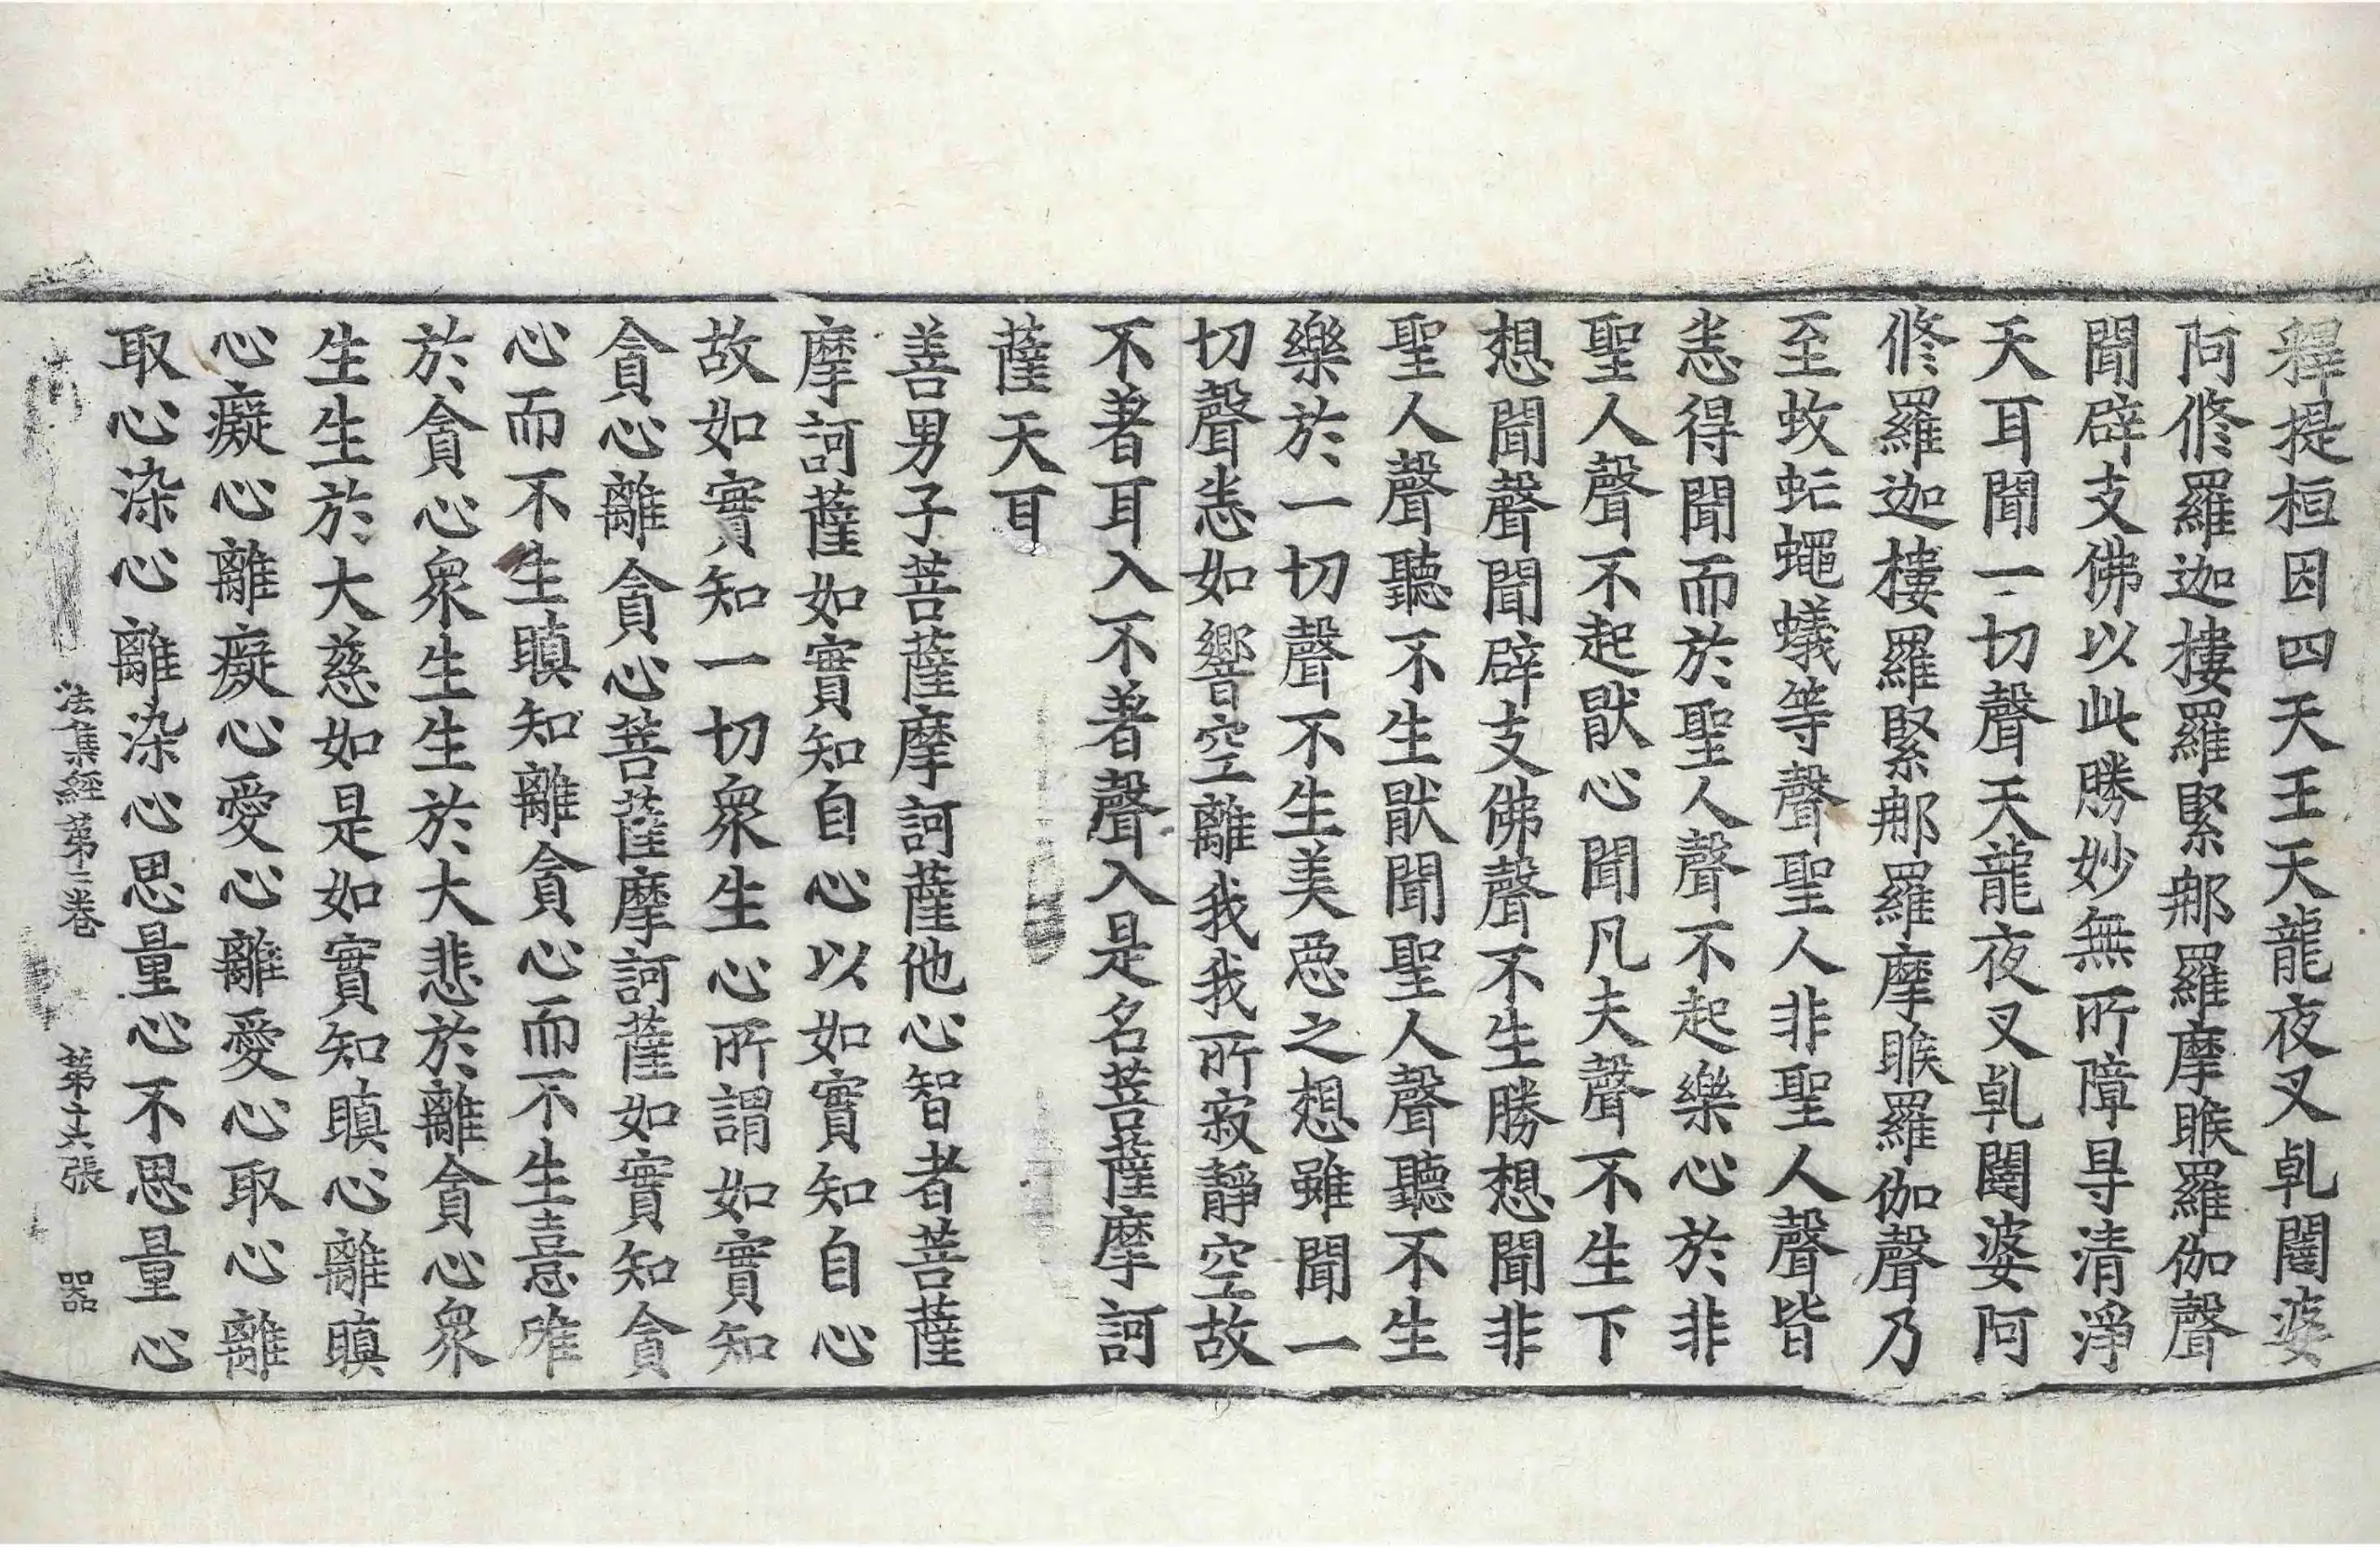 釋提桓因四天王天龍夜叉乹闥婆
阿修羅迦樓羅緊那羅摩睺羅伽聲
聞辟支佛以此勝妙無所障㝵清淨
天耳聞一切聲天龍夜叉乹闥婆阿
修羅迦樓羅緊那羅摩睺羅伽聲乃
至蚊虻蠅蟻等聲聖人非聖人聲皆
悉得聞而於聖人聲不起樂心於非
聖人聲不起猒心聞凡夫聲不生下
想聞聲聞辟支佛聲不生勝想聞非
聖人聲聽不生猒聞聖人聲聽不生
樂於一切聲不生美惡之想雖聞一
切聲悉如響空離我我所寂靜空故
不著耳入不著聲入是名菩薩摩訶
薩天耳
善男子菩薩摩訶薩他心智者菩薩
摩訶薩如實知自心以如實知自心
故如實知一切衆生心所謂如實知
貪心離貪心菩薩摩訶薩如實知貪
心而不生瞋知離貪心而不生憙唯
於貪心衆生生於大悲於離貪心衆
生生於大慈如是如實知瞋心離瞋
心癡心離癡心愛心離愛心取心離
取心染心離染心思量心不思量心
法集經第二卷 第十六張 器